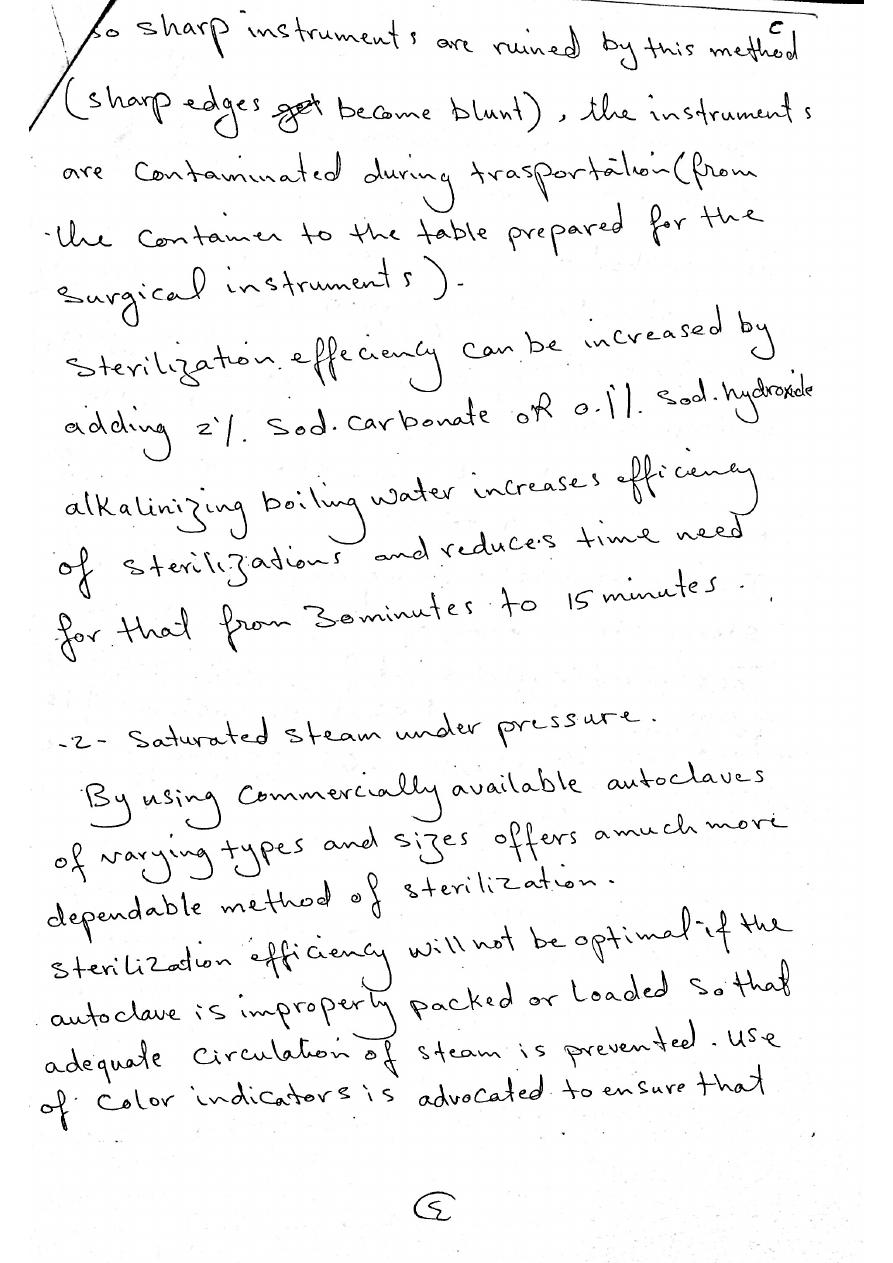 so sharp instruments are ruined by this method
(sharp edges get become blunt), the instruments
are contaminated during trasportation (from
the container to the table prepared for the
surgical instruments).
Sterilization effeciency can be increased by
adding 2%. Sod. carbonate OR 0.1%. Sod. hydroxide
alkalinizing boiling water increases efficiency
of sterilizations and reduces time need
for that from 30 minutes to 15 minutes.
-2- Saturated steam under pressure.
By using commercially available autoclaves
of varying types and sizes offers a much more
dependable method of sterilization.
Sterilization efficiency will not be optimal if the
autoclave is improperly packed or loaded so that
adequate circulation of steam is prevented. use
of color indicators is advocated to ensure that
٤